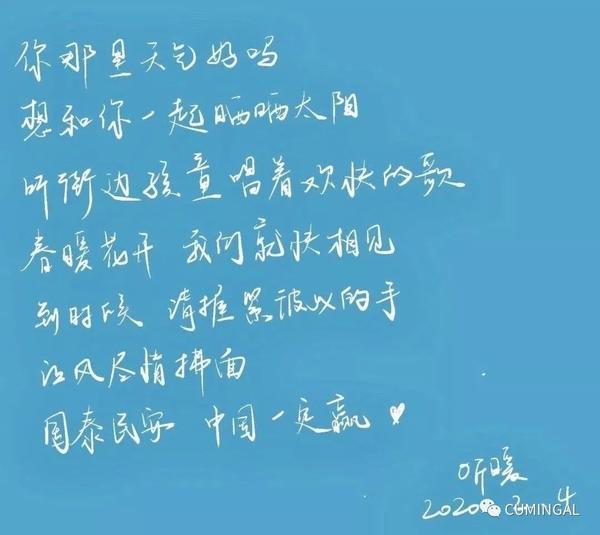 你那里天气好吗
想和你一起晒晒太阳
听街边孩童唱着欢快的歌
春暖花开 我们就快相见
到时候 请握紧彼此的手
让风尽情拂面
国泰民安 中国一定赢
听暖
2020.2.4
CUMINGAL